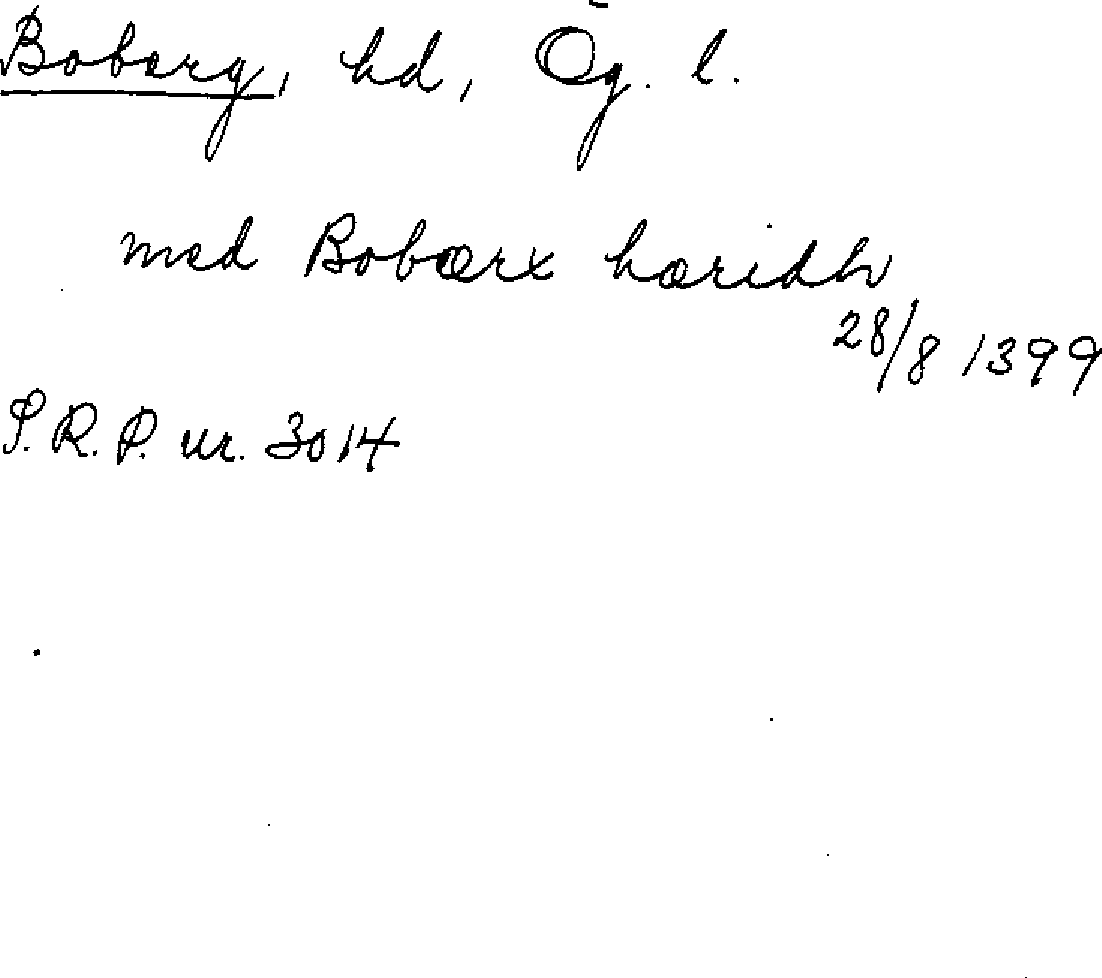 Boberg, hd, Ög. l.
med Bobærx hæridh
28/8 1399
S.R.P. nr. 3014